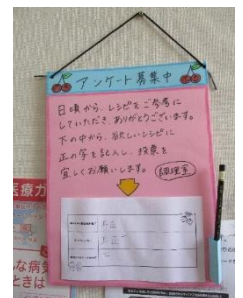 アンケート募集中
日頃から、レシピをご参考に
していただき、ありがとうございます。
下の中から、欲しいレシピに
正の字を記入し、投票を
宜しくお願いします。 調理室
医療
な病気
ときは